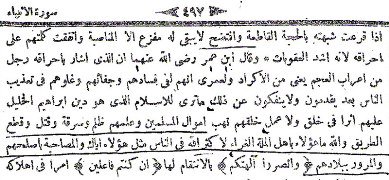 سورة الانبياء ﴿٤٩٧﴾
اذا قرعت شبهته بالحجة القاطعة وافتضح لايبقى له مفزع الا المناصبة واتفقت كلمتهم على
احراقه لانه اشد العقوبات * وقال ابن عمر رضى الله عنهما ان الذى اشار باحراقه رجل
من اعراب العجم يعنى من الأكراد ولعمرى انهم لفى فسادهم وجفائهم وغلوهم فى تعذيب
الناس بعد يقدمون ولاينفكون عن ذلك ماترى للاسلام الذى هو دين ابراهيم الخليل
عليهم اثرا فى خلق ولا عمل خلقهم نهب اموال المسلمين وعلمهم ظلم وسرقة وقتل وقطع
الطريق والله ماهؤلاء باهل الملة الغراء لا كثر الله فى الناس مثل هؤلاء اياك والمصاحبة باصلحهم
والمرور ببلادهم ﴿وانصروا آلهتكم﴾ بالانتقام لها ﴿ان كنتم فاعلين﴾ امرا فى اهلاكه